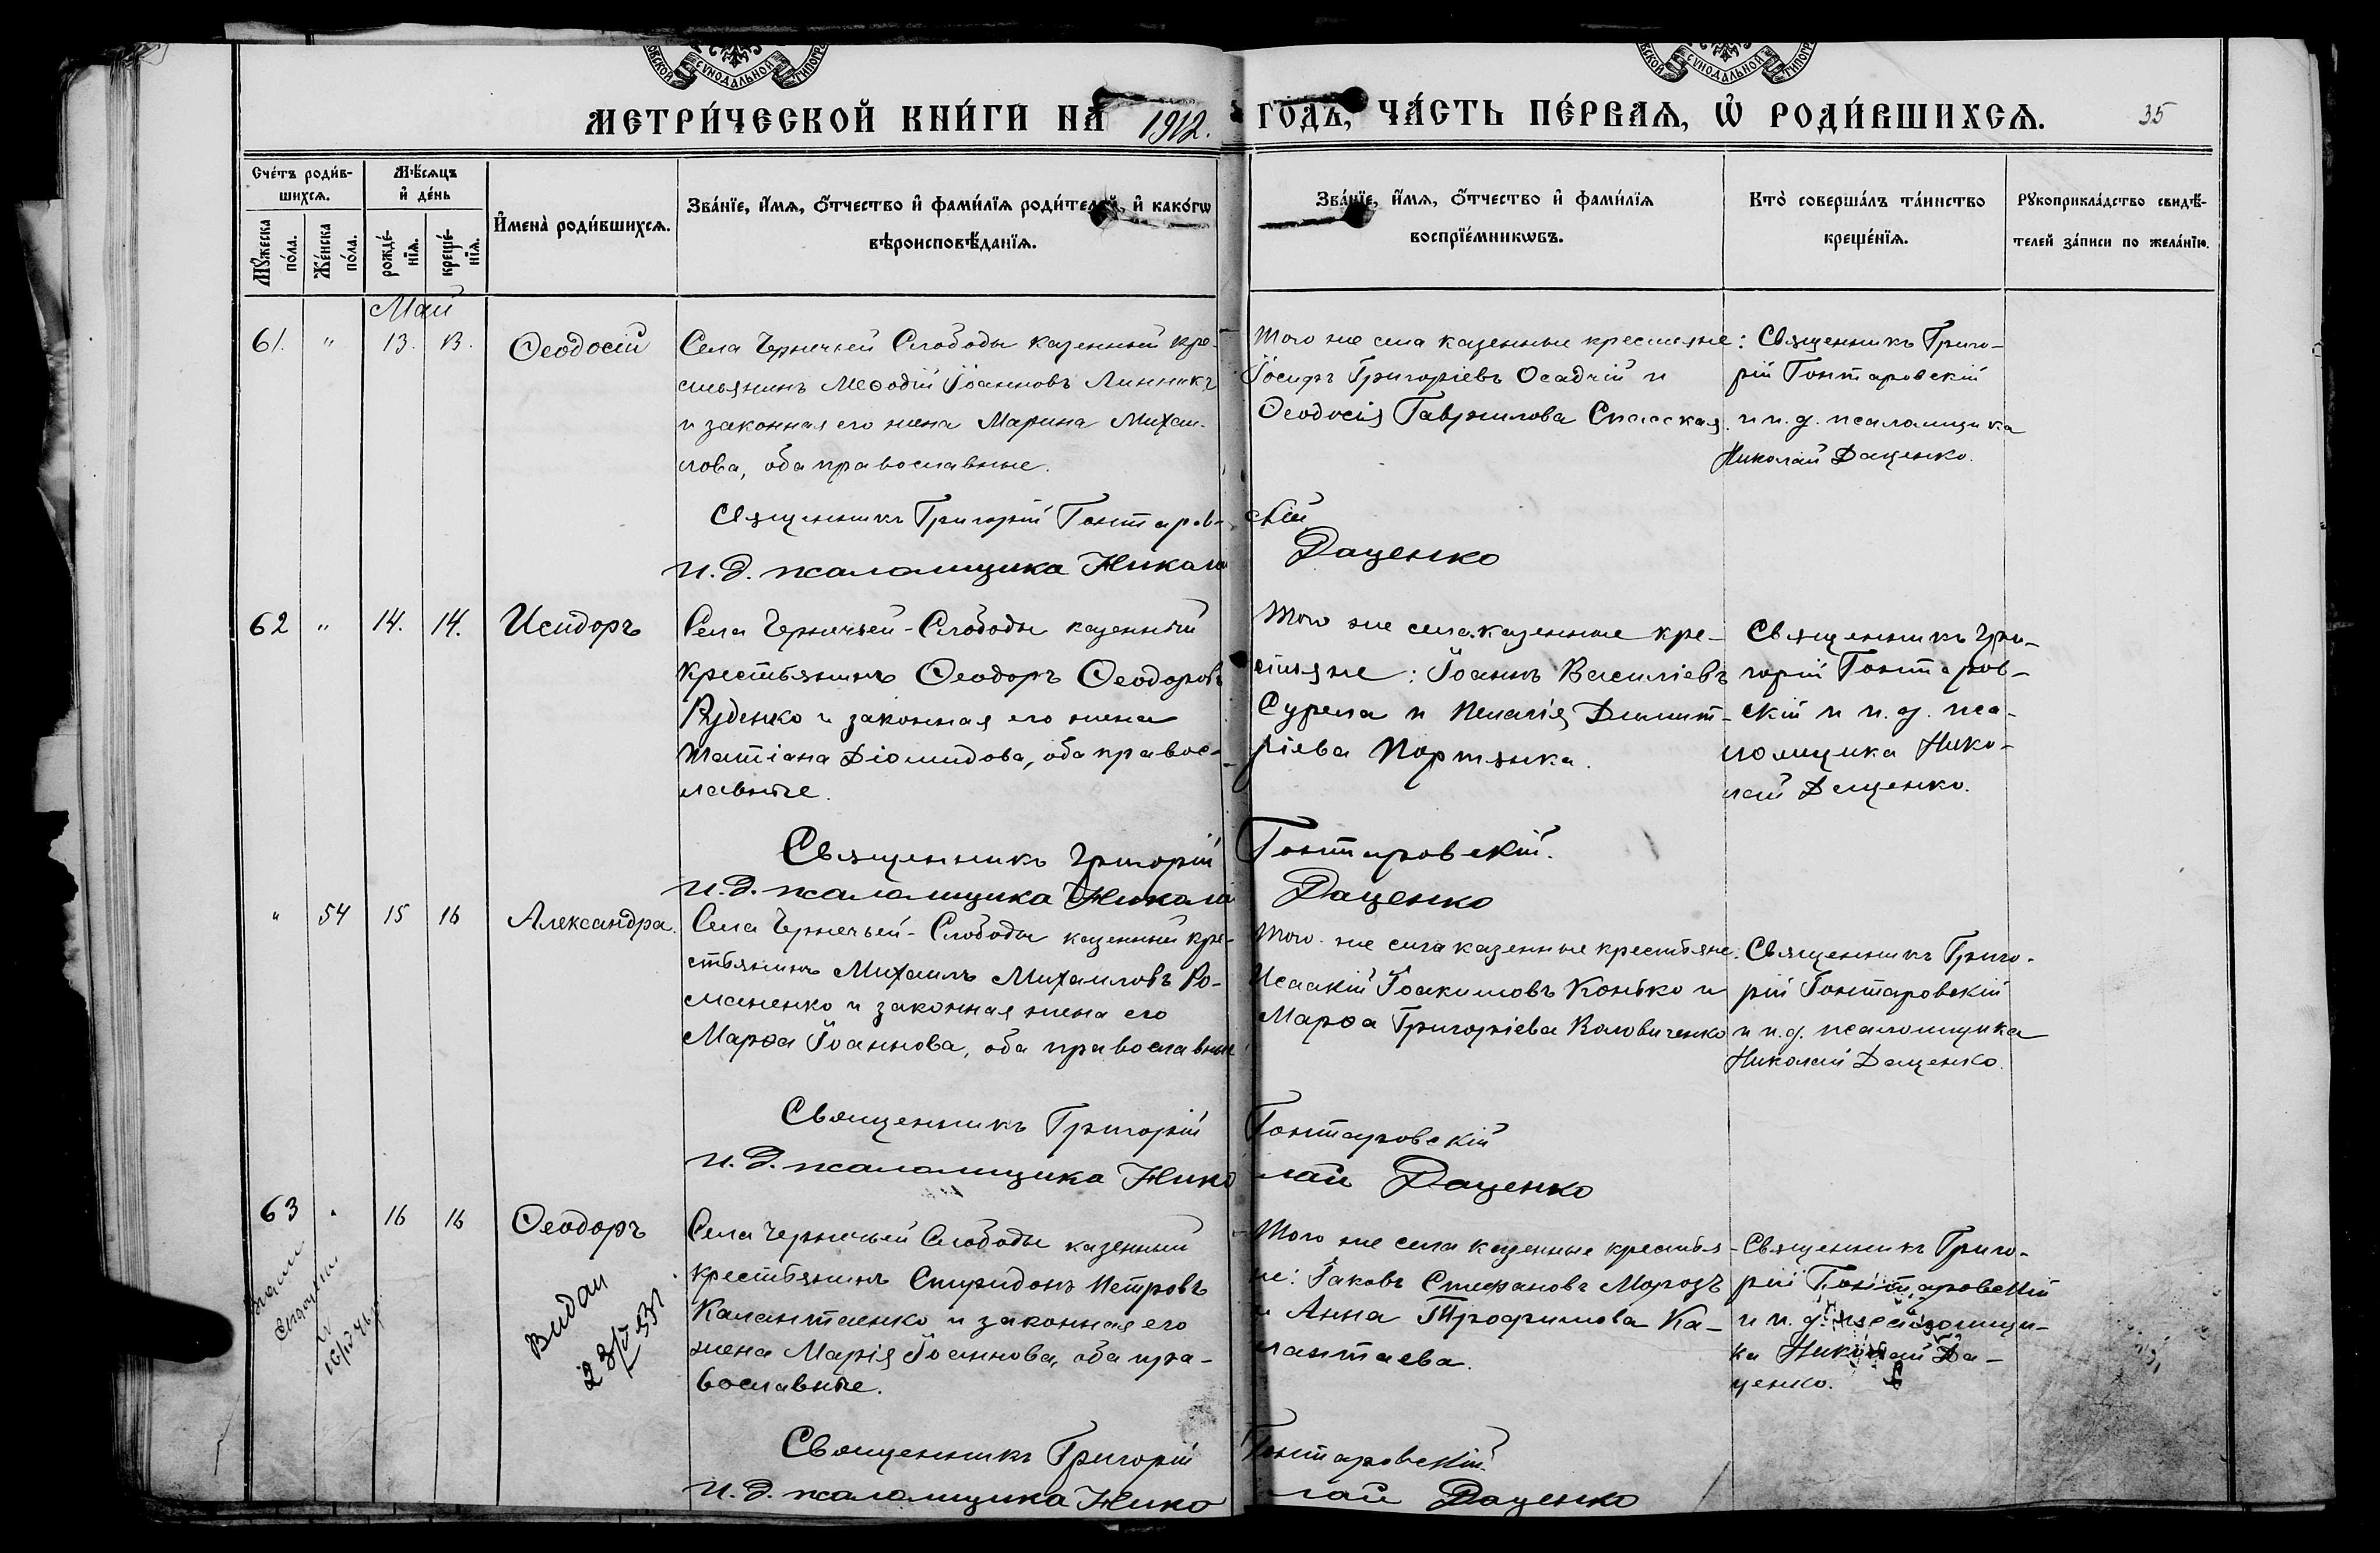 СѴНОДАЛЬНОЙ
ТИПОГР
СѴНОДАЛЬНОЙ
ТИПОГР
МЕТРИ́ЧЕСКОЙ КНИ́ГИ НА 1912. ГО́ДЪ, ЧА́СТЬ ПЕ́РВАЯ, Ѿ РОДИ́ВШИХСЯ.
35
Сче́тъ роди́в-
шихся.
Мꙋ́жеска
по́ла.
Же́нска
по́ла.
Мѣ́сяцъ
и҆ де́нь
рожде́-
нїя.
креще́-
нїя.
И҆мена̀ роди́вшихся.
Зва́нїе, и҆́мя, ѻ҆́тчество и҆ фами́лїя роди́телей, и҆ како́гѡ
вѣроисповѣ́данїя.
Зва́нїе, и҆́мя, ѻ҆́тчество и҆ фами́лїя
воспрїе́мникѡвъ.
Кто̀ соверша́лъ та́инство
креще́нїя.
Рꙋкоприкла́дство свидѣ́-
телей за́писи по жела́нїю.
Май
61. " 13. 13. Ѳеодосій
Села Чернечьей Слободы казенный кре-
стьянинъ Меѳодій Іоанновъ Линникъ
и законная его жена Марина Михаи-
лова, оба православные.
Того же села казенные крестьяне:
Іосифъ Григоріевъ Осадчій и
Ѳеодосія Гавриилова Спасская.
Священникъ Григо-
рій Гонтаровскій
и и. д. псаломщика
Николай Даценко.
Священникъ Григорій Гонтаровскій
И. д. псаломщика Николай Даценко
62 " 14. 14. Исидоръ
Села Чернечьей-Слободы казенный
крестьянинъ Ѳеодоръ Ѳеодоровъ
Руденко и законная его жена
Татіана Діомидова, оба правос-
лавные.
Того же села казенные кре-
стьяне: Іоаннъ Василіевъ
Сурела и Пелагія Димит-
ріева Портянка.
Священникъ Гри-
горій Гонтаров-
скій и и. д. пса-
ломщика Нико-
лай Даценко.
Священникъ Григорій Гонтаровскій.
И. д. псаломщика Николай Даценко
" 54 15 16 Александра.
Села Чернечьей-Слободы казенный кре-
стьянинъ Михаилъ Михаиловъ Ро-
маненко и законная жена его
Марѳа Іоаннова, оба православные.
Того же села казенные крестьяне:
Исаакій Іоакимовъ Конько и
Марѳа Григоріева Коловиченко
Священникъ Григо-
рій Гонтаровскій
и и. д. псаломщика
Николай Даценко.
Священникъ Григорій Гонтаровскій
И. д. псаломщика Николай Даценко
63 " 16 16 Ѳеодоръ
Видан
23/V 53
16/IV 46 р.
Села Чернечьей Слободы казенный
крестьянинъ Спиридонъ Петровъ
Калантаенко и законная его
жена Марія Іоаннова, оба пра-
вославные.
Того же села казенные крестья-
не: Іаковъ Стефановъ Морозъ
и Анна Трофимова Ка-
лантаева.
Священникъ Григо-
рій Гонтаровскій
и и. д. псаломщи-
ка Николай Да-
ценко.
Священникъ Григорій Гонтаровскій.
И. д. псаломщика Николай Даценко